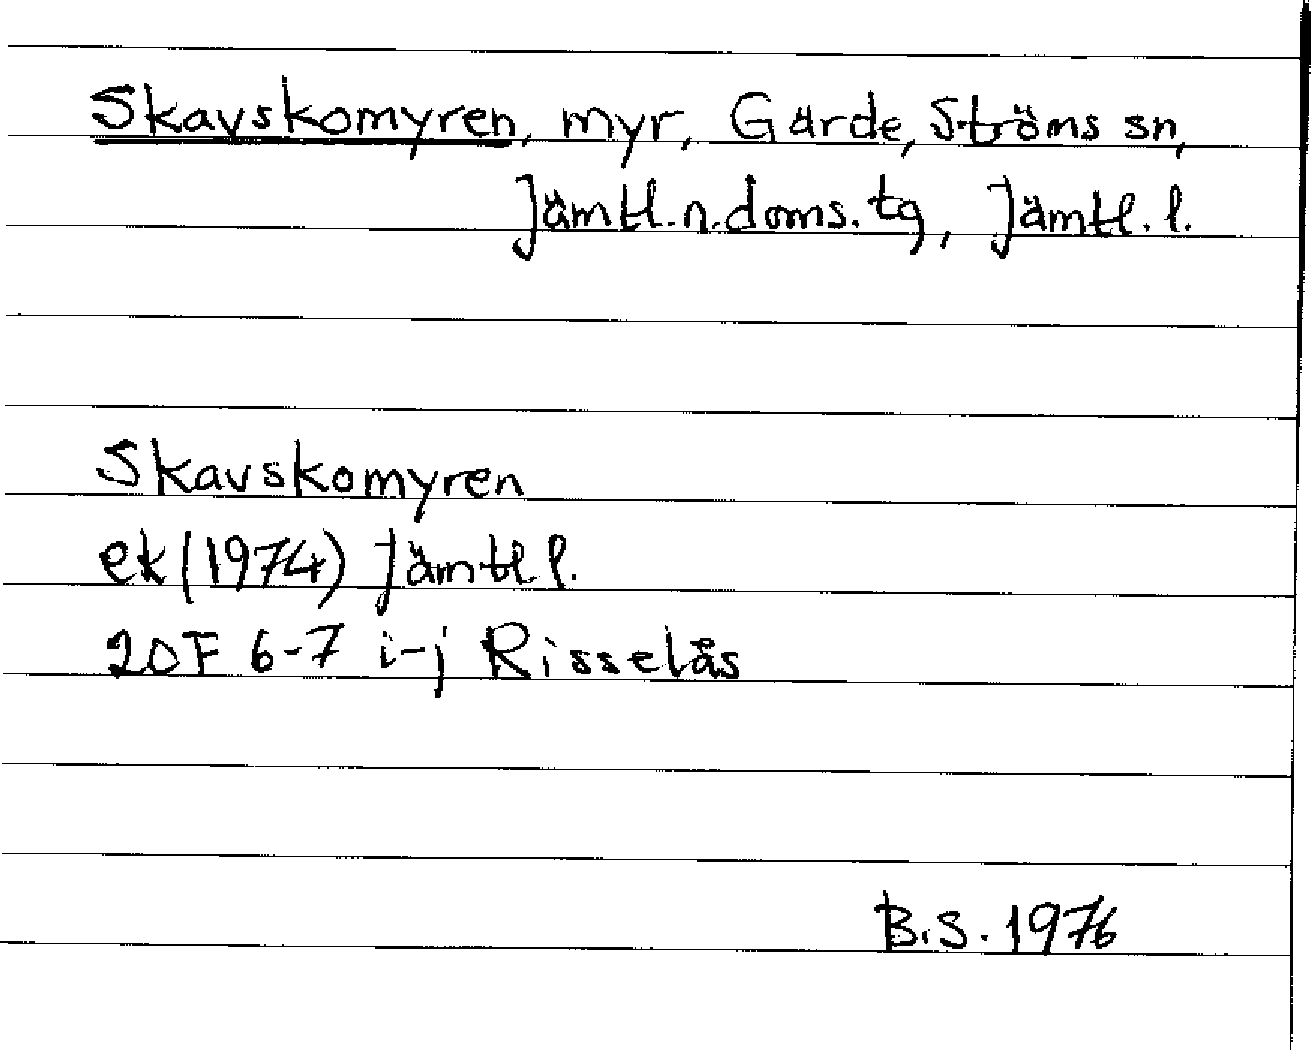 Skavskomyren, myr, Gärde, Ströms sn,
Jämtl.n.doms.tg, Jämtl.l.
Skavskomyren
ek (1974) Jämtl l.
20F 6-7 i-j Risselås
B.S. 1976